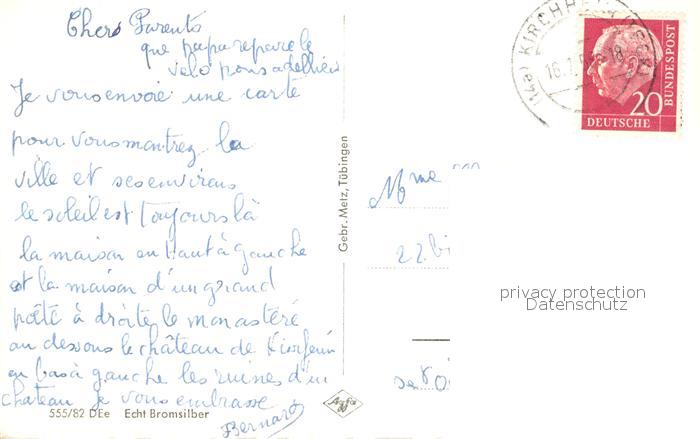 Chers Parents
que papa repare le
velo pous
Je vous envoie une carte
pour vous montrez la
ville et ses environs
le soleil est toujours là
la maison en haut à gauche
et la maison d'un grand
poëte à droite le monastéré
au dessous le château de
en bas à gauche les ruines d'un
chateau Je vous embrasse
Bernard
555/82 DEe Echt Bromsilber
Gebr. Metz, Tübingen
Agfa
(14a) KIRCHHEIM
16.7.
18
20
DEUTSCHE
BUNDESPOST
Mme
22 bi
privacy protection
Datenschutz